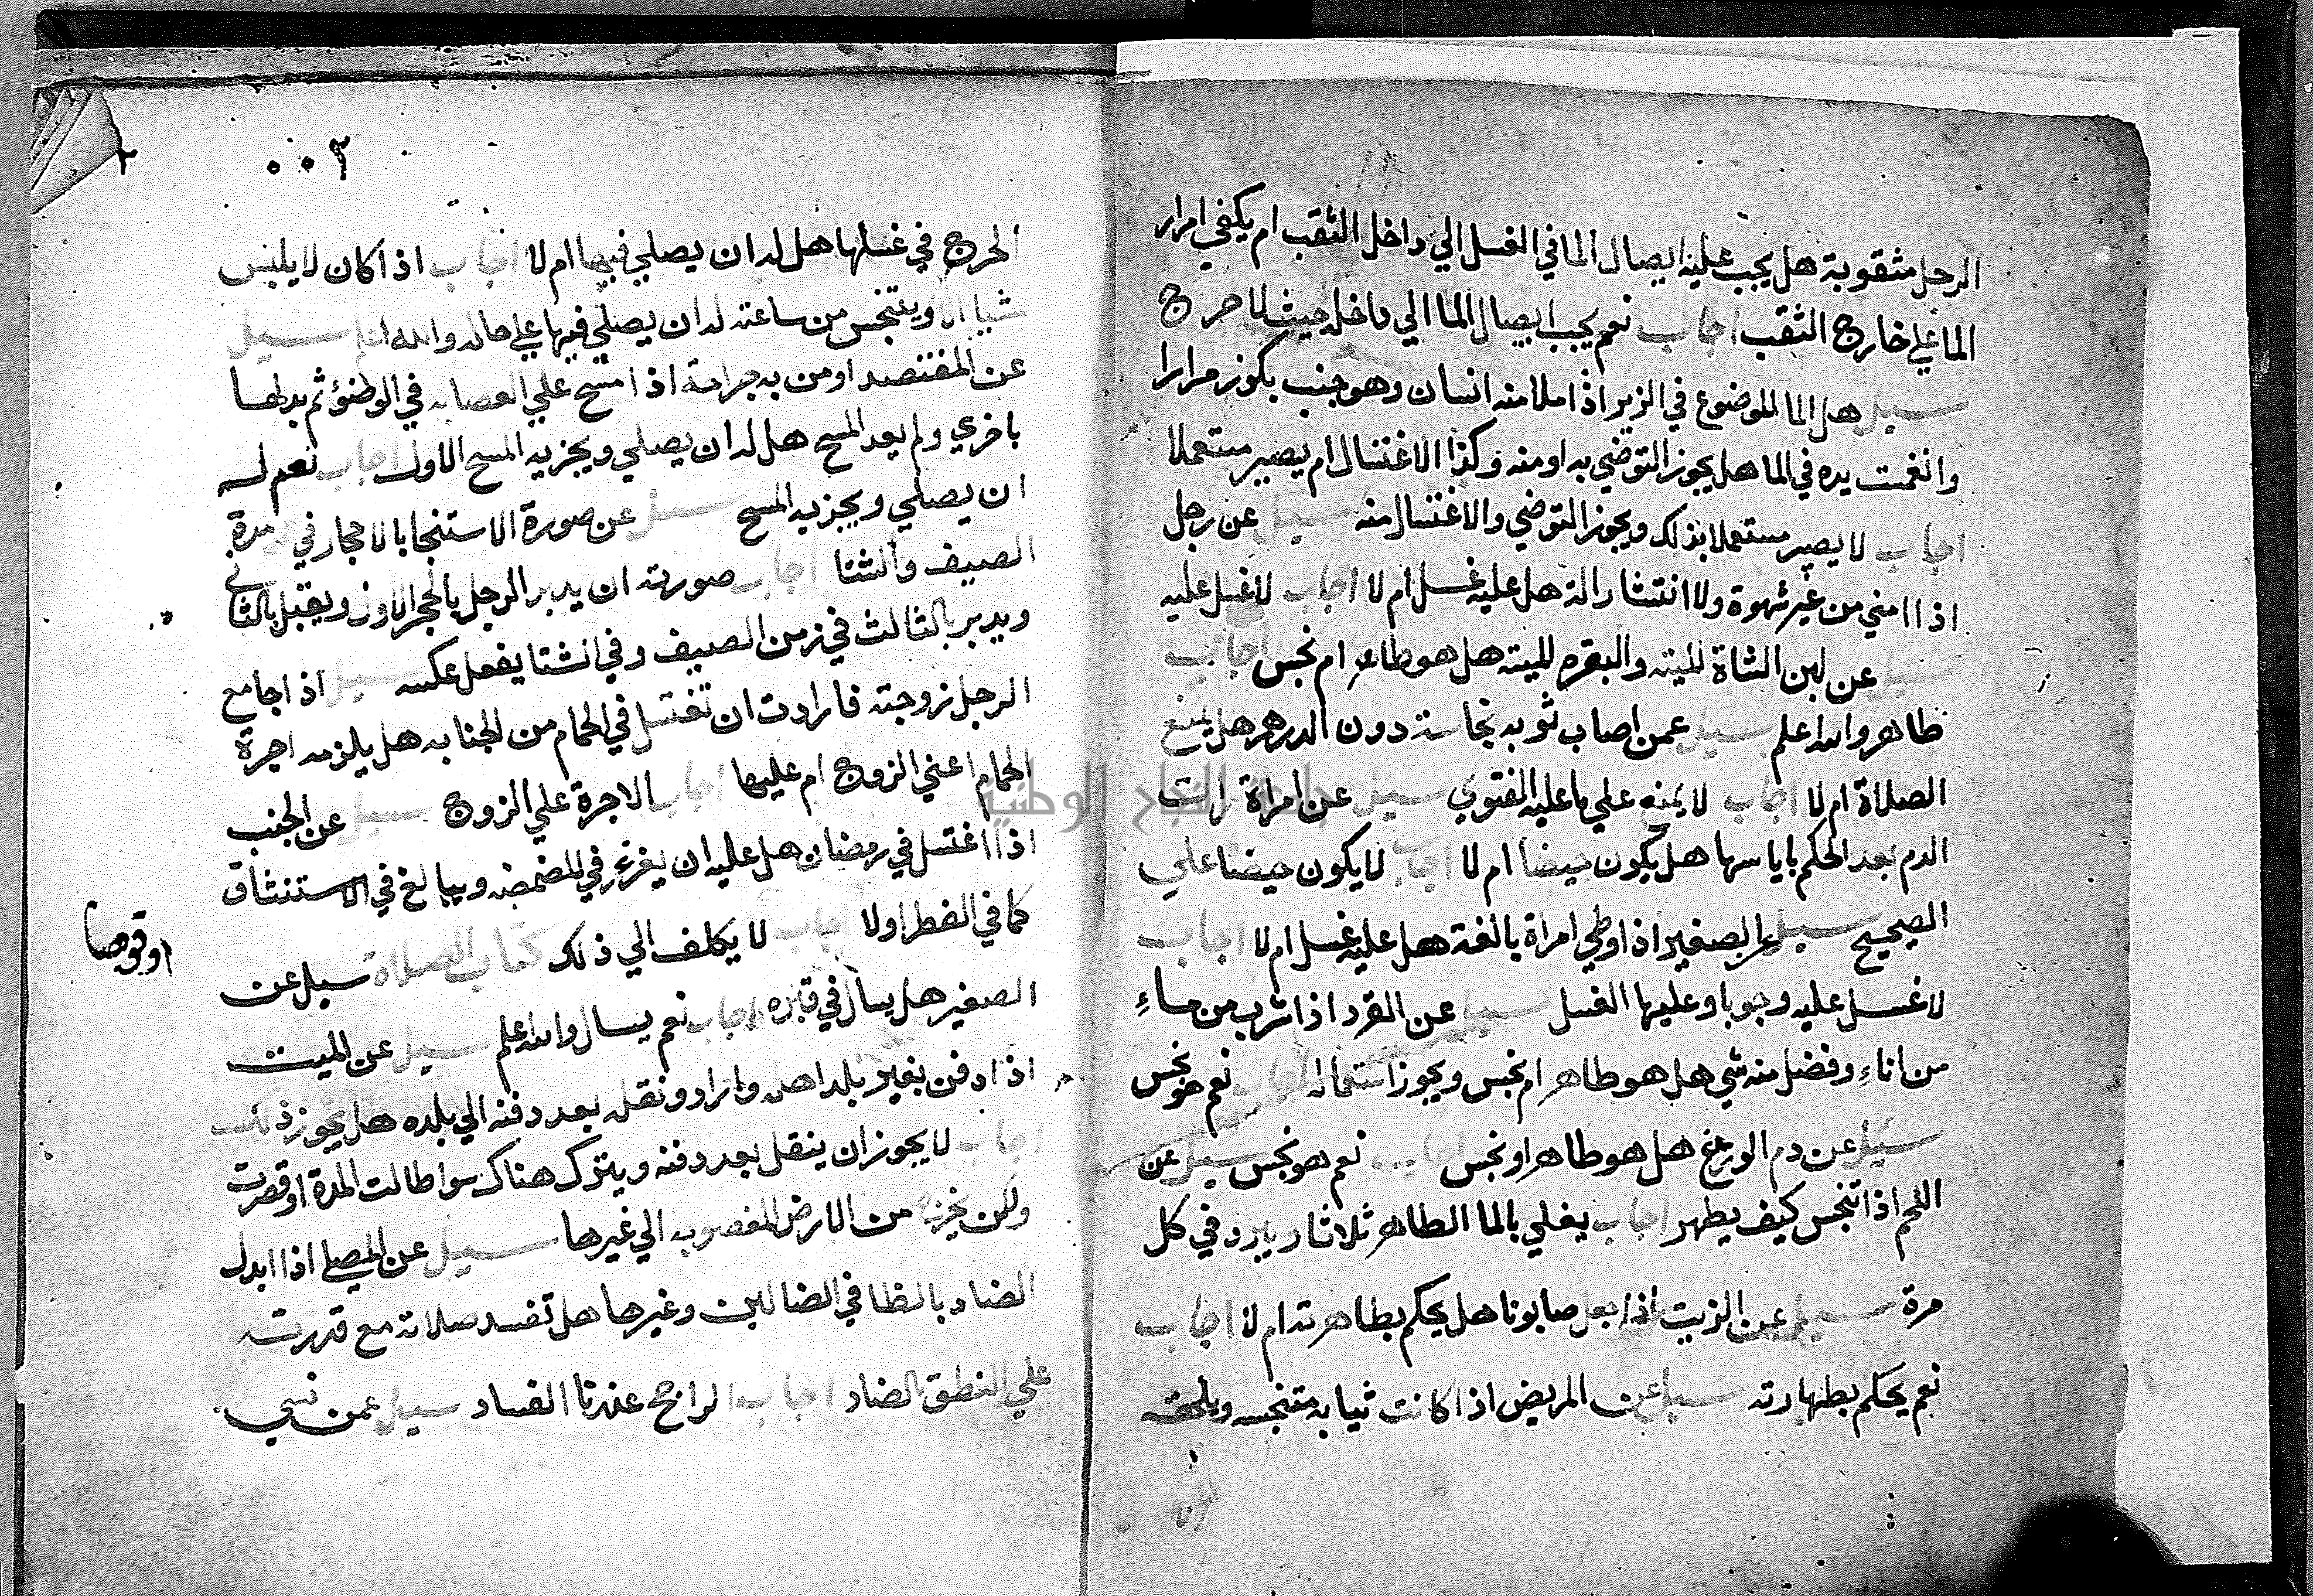 الرجل مثقوبة هل يجب عليه ايصال الما في الغسل الي داخل الثقب ام يكفي امرار
الما علي خارج الثقب اجاب نعم يجب ايصال الما الي داخله حيث لا حرج
سيل هل الما الموضوع في الزير اذا ملا منه انسان وهو جنب بكوز مرارا
وانغمت يده في الما هل يجوز التوضي به او منه وكذا الاغتسال ام يصير مستعملا
اجاب لا يصير مستعملا بذلك ويجوز التوضي والاغتسال منه سيل عن رجل
اذا امني من غير شهوة ولا انتشار الة هل عليه غسل ام لا اجاب لا غسل عليه
سيل عن لبن الشاة الميته والبقره الميته هل هو طاهر ام نجس اجاب
طاهر والله اعلم سيل عمن اصاب ثوبه نجاسة دون الدرهم هل يمنع
الصلاة ام لا اجاب لا يمنع علي ما عليه الفتوي سيل عن امراة رات
الدم بعد الحكم باياسها هل يكون حيضا ام لا اجاب لا يكون حيضا علي
الصحيح سيل عن الصغير اذا وطي امراة بالغة هل عليه غسل ام لا اجاب
لا غسل عليه وجوبا وعليها الغسل سيل عن القرد اذا شرب من ماء
من اناء وفضل منه شي هل هو طاهر ام نجس ويجوز استعماله اجاب نعم هو نجس
سيل عن دم الوزغ هل هو طاهر او نجس اجاب نعم هو نجس سيل عن
اللحم اذا تنجس كيف يطهر اجاب يغلي بالما الطاهر ثلاثا ويبرد في كل
مرة سيل عن الزيت اذا جعل صابونا هل يحكم بطاهرته ام لا اجاب
نعم يحكم بطهارته سيل عن المريض اذا كانت ثيابه متنجسه ويلحقه
٠٠٣
٢
الحرج في غسلها هل له ان يصلي فيها ام لا اجاب اذا كان لا يلبس
شيا الا ويتنجس من ساعته له ان يصلي فيها علي حاله والله اعلم سيل
عن المفتصد او من به جراحة اذا مسح علي العصابه في الوضوء ثم بدلها
باخري ولم يعد المسح هل له ان يصلي ويجزيه المسح الاول اجاب نعم له
ان يصلي ويجزيه المسح سيل عن صورة الاستنجا بالاحجار في مدة
الصيف والشتا اجاب صورته ان يدبر الرجل بالحجر الاول ويقبل بالثاني
ويدبر بالثالث في زمن الصيف وفي الشتا يفعل عكسه سيل اذا جامع
الرجل زوجته فارادت ان تغتسل في الحمام من الجنابه هل يلزمه اجرة
الحمام اعني الزوج ام عليها اجاب الاجرة علي الزوج سيل عن الجنب
اذا اغتسل في رمضان هل عليه ان يغرغر في المضمضه ويبالغ في الاستنشاق
كما في الفطر اولا اجاب لا يكلف الي ذلك كتاب الصلاة سيل عن
الصغير هل يسال في قبره اجاب نعم يسال والله اعلم سيل عن الميت
اذا دفن بغير بلد اهله وارادو نقله بعد دفنه الي بلده هل يجوز ذلك
اجاب لا يجوز ان ينقل بعد دفنه ويترك هناك سوا طالت المدة او قصرت
ولكن يخرج من الارض المغصوبه الي غيرها سيل عن المصلي اذا ابدل
الضاد بالظا في الضالين وغيرها هل تفسد صلاته مع قدرته
علي النطق بالضاد اجاب الراجح عندنا الفساد سيل عمن نسي
جامعة النجاح الوطنية